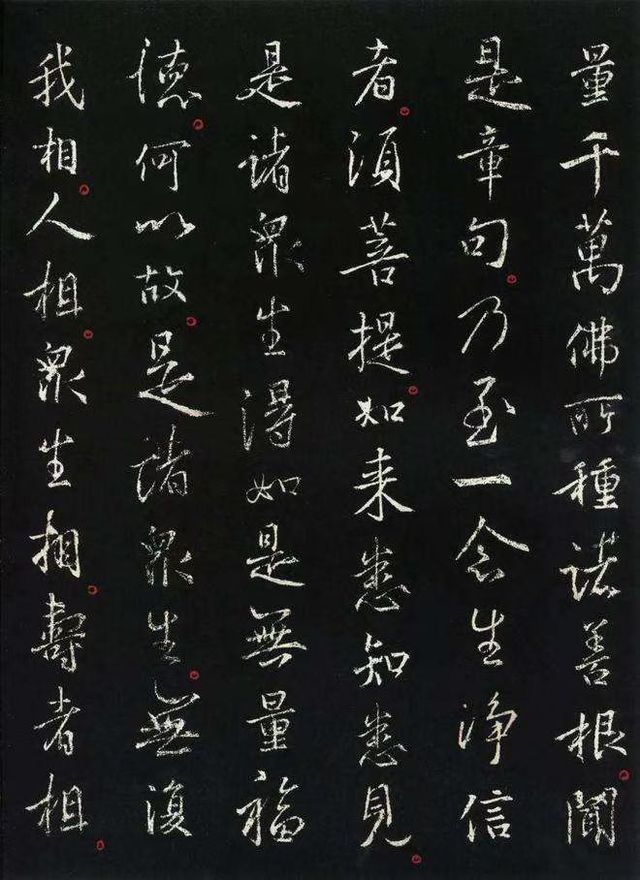 量千萬佛所種諸善根聞
是章句乃至一念生淨信
者須菩提如来悉知悉見
是諸眾生得如是無量福
德何以故是諸眾生無復
我相人相眾生相壽者相